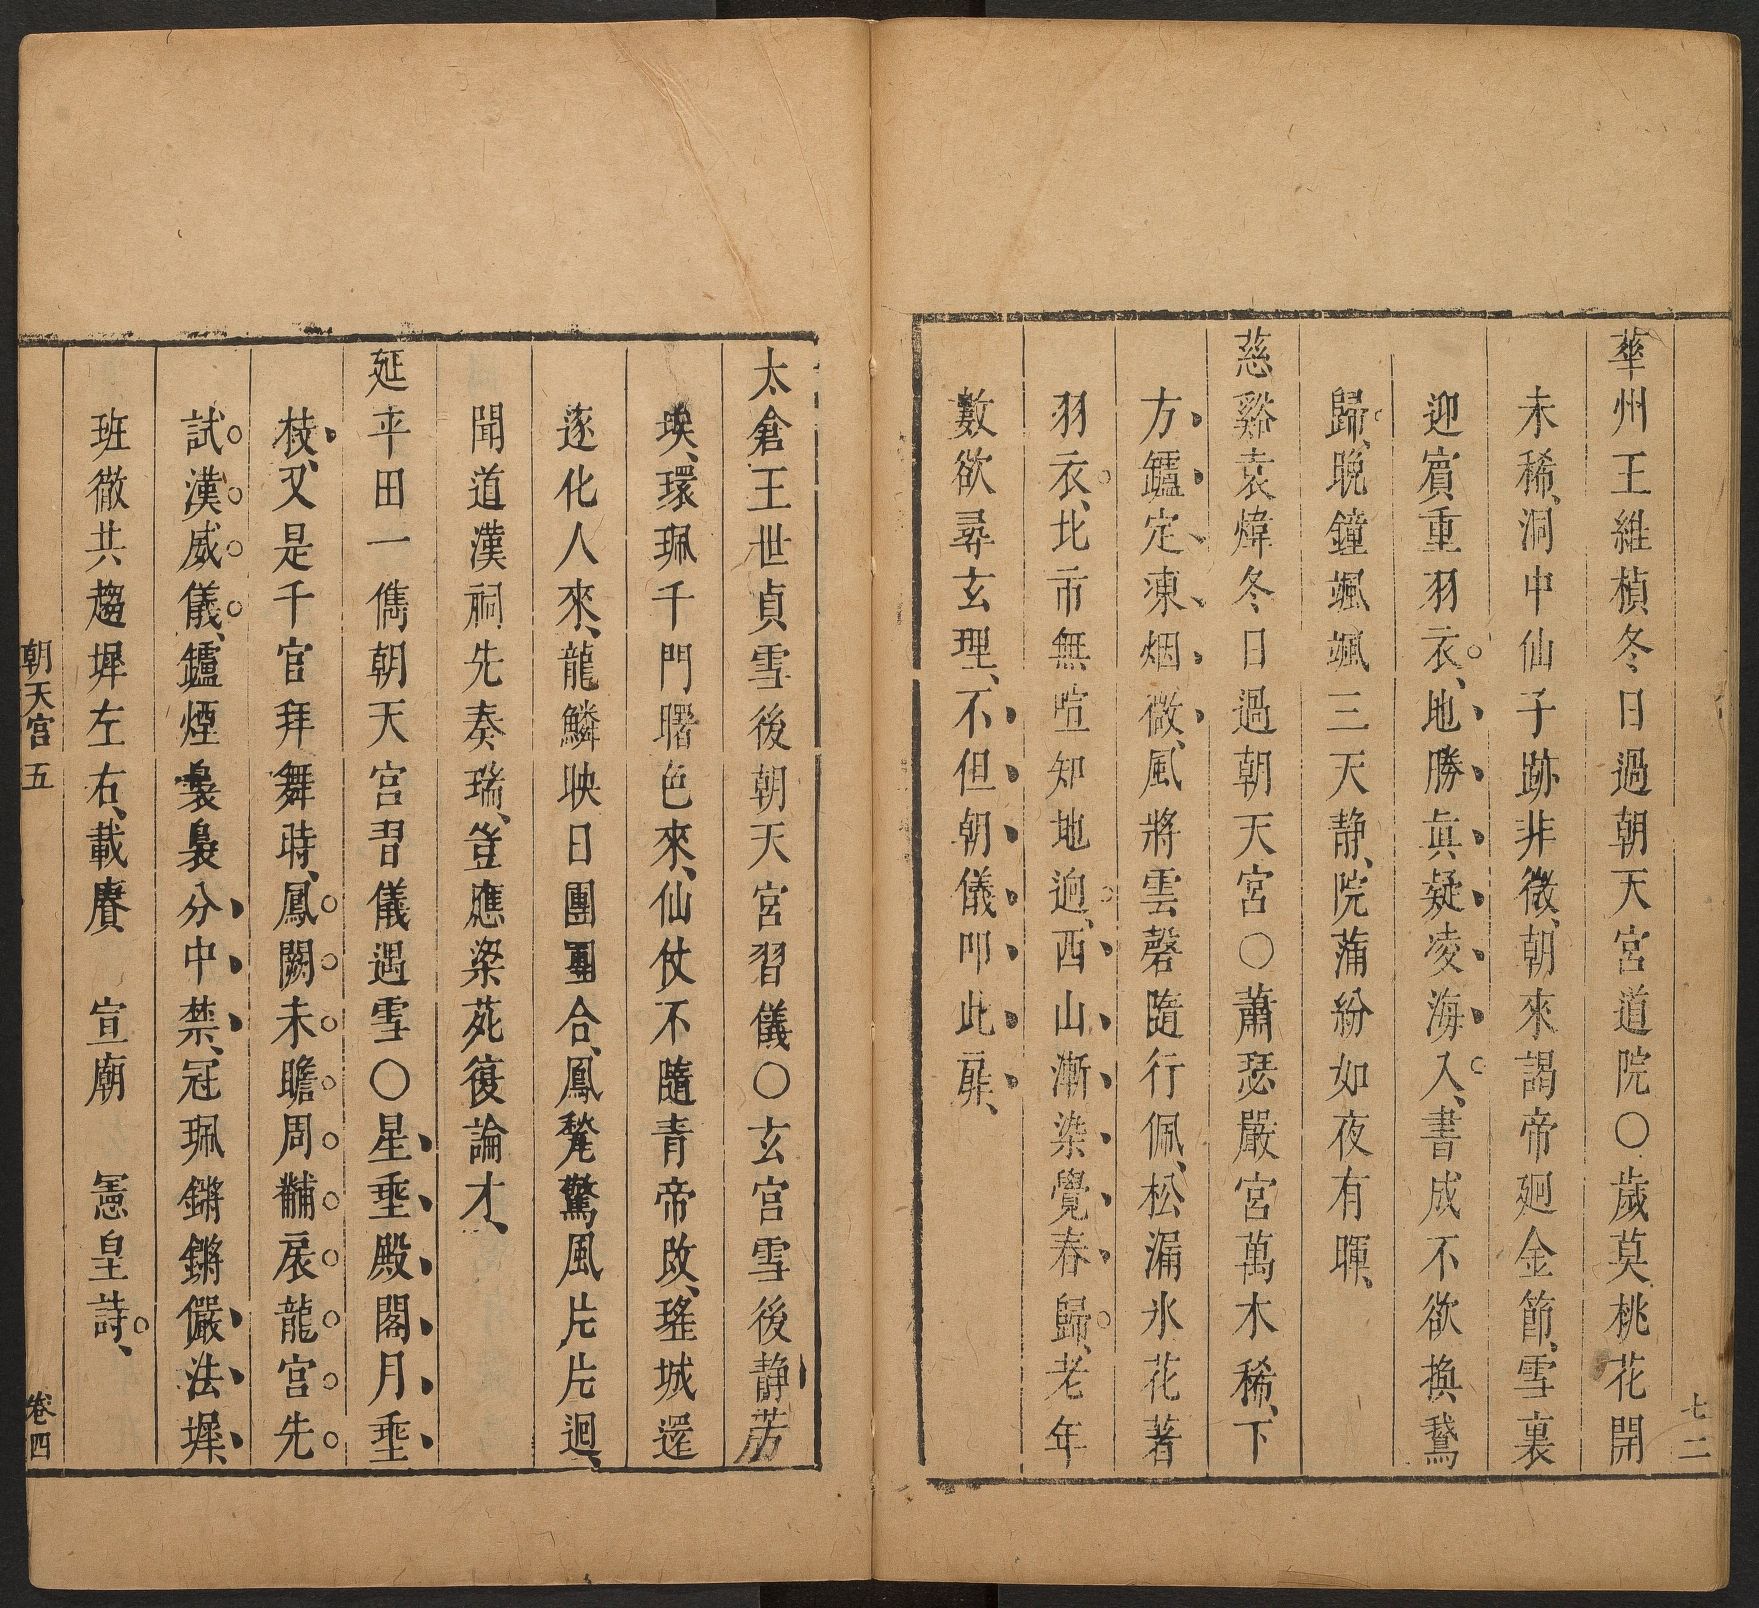 華州王維楨冬日過朝天宮道院○歲莫桃花開
未稀、洞中仙子跡非微、朝來謁帝廻金節、雪裏
迎賓重羽衣、地勝眞疑凌海入、書成不欲換鵞
歸、晚鐘颯颯三天靜、院蒲紛如夜有暉、
慈谿袁煒冬日過朝天宮○蕭瑟嚴宮萬木稀、下
方鑪定凍烟微、風將雲磬隨行佩、松漏氷花著
羽衣、北市無喧知地迥、西山漸染覺春歸、老年
數欲尋玄理、不但朝儀叩此扉、
七二
太倉王世貞雪後朝天宮習儀○玄宮雪後靜芳
埃、環珮千門曙色來、仙仗不隨青帝改、瑤城遝
逐化人來、龍鱗映日團團合、鳳氅驚風片片迴、
聞道漢祠先奏瑞、豈應梁苑復論才、
延平田一儁朝天宮習儀遇雪○星垂殿閣月垂
枝、又是千官拜舞時、鳳闕未瞻周黼扆龍宮先
試漢威儀、鑪煙裊裊分中禁、冠珮鏘鏘儼法墀、
班徹共趨墀左右、載賡 宣廟 憲皇詩、
朝天宮 五 卷四